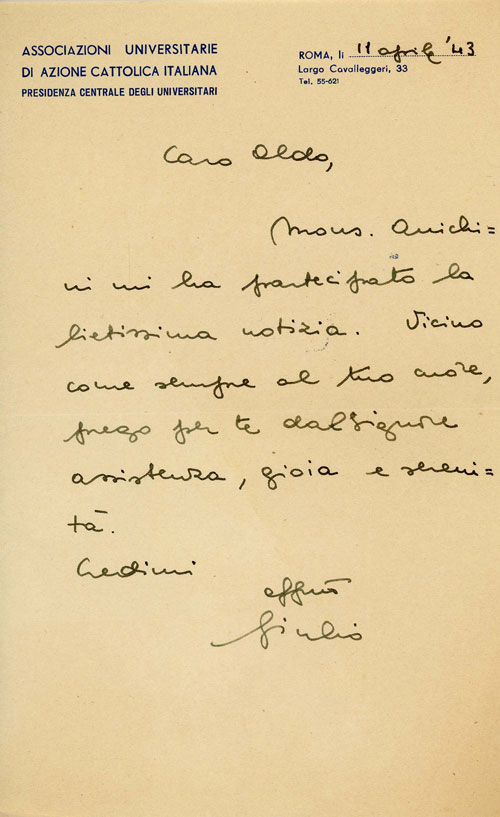 ASSOCIAZIONI UNIVERSITARIE
DI AZIONE CATTOLICA ITALIANA
PRESIDENZA CENTRALE DEGLI UNIVERSITARI
ROMA, li 11 aprile '43
Largo Cavalleggeri, 33
Tel. 55-621
Caro Aldo,
Mons. Anichi=
ni mi ha partecipato la
lietissima notizia. Vicino
come sempre al tuo cuore,
prego per te dal Signore
assistenza, gioia e sereni=
tà.
Credimi
aff.mo
Giulio